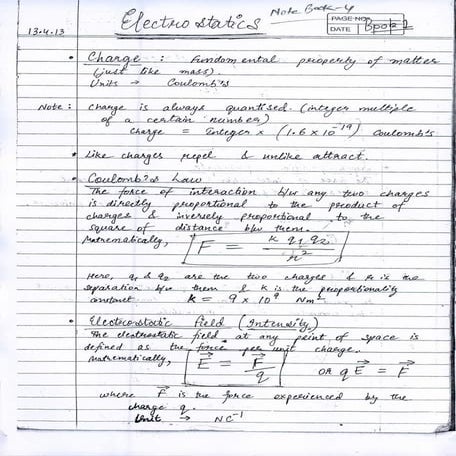 Note Book-4
Electrostatics
PAGE NO.
DATE
13.4.13
• Charge : Fundamental property of matter
(just like mass).
Units → Coulomb's
Note : Charge is always quantised. (integer multiple
of a certain number)
Charge = Integer × (1.6 × 10⁻¹⁹) Coulomb's
* Like charges repel & unlike attract.
• Coulomb's Law
The force of interaction b/w any two charges
is directly proportional to the product of
charges & inversely proportional to the
square of distance b/w them.
Mathematically, F = k q₁ q₂ / r²
Here, q₁ & q₂ are the two charges & r is the
separation b/w them & k is the proportionality
constant k = 9 × 10⁹ Nm²
• Electrostatic field (Intensity)
The electrostatic field at any point of space is
defined as the force per unit charge.
Mathematically, E⃗ = F⃗ / q OR q E⃗ = F⃗
where F⃗ is the force experienced by the
charge q.
Unit → NC⁻¹